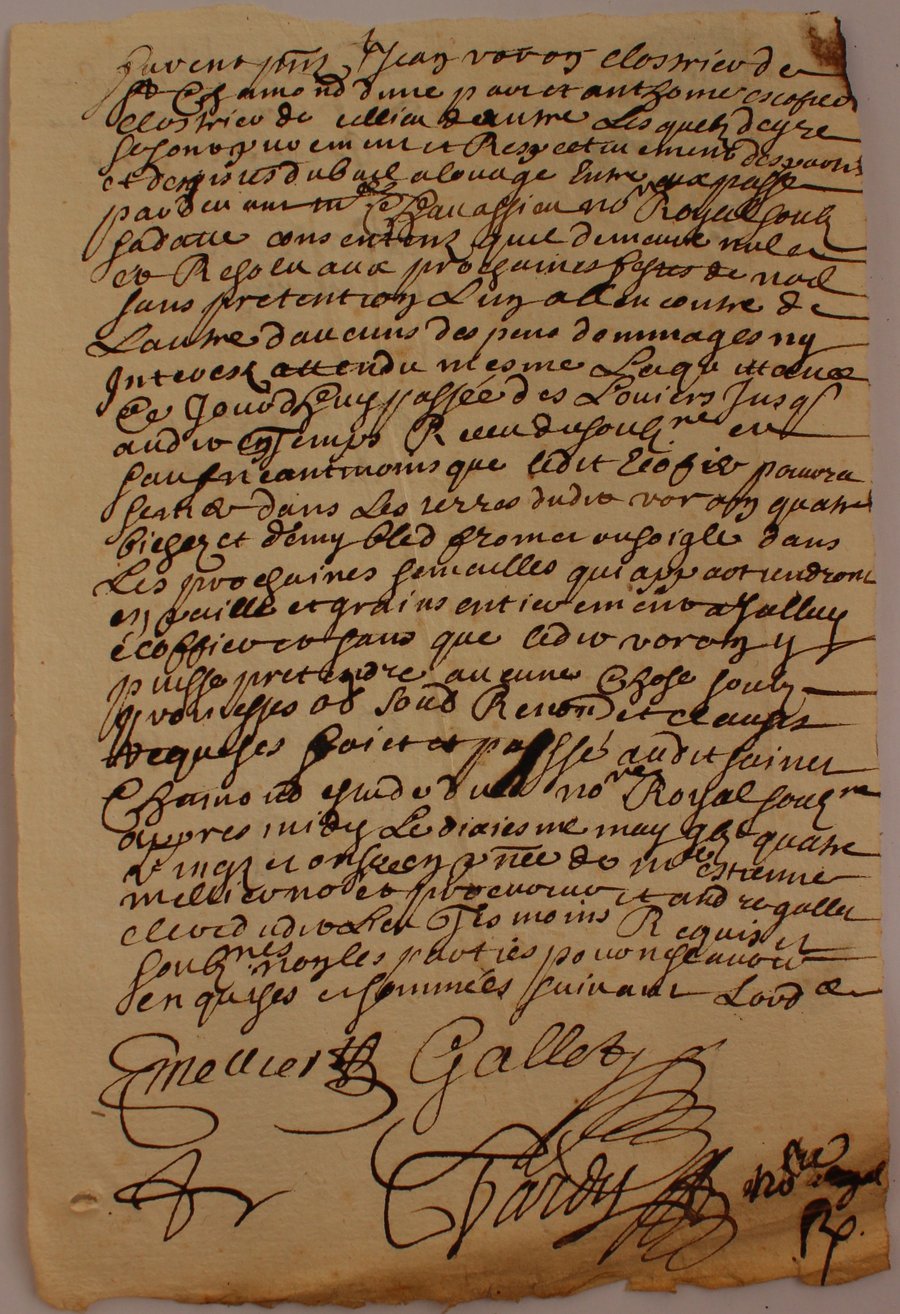 furent pnts Jean voron Clostrier de
St Chamond dune part et anthome escofier
Clostrier de cellieu dautre Lesquels de gre
se sont et Respectivement
et desistes du bail a louage Entre eux passé
par devant me Chavassieu nore Royal soubz
sa datte consentent quil demeure nul et
et Resolu aux prochaines festes de noel
sans pretention Lun allencontre de
Lautre daucuns despens dommages ny
Interest attendu mesme La quittance
Ce Jourdhuy passée des Loüiers Jusqs
audit Temps Receu du soubzne et
sauf neantmoins que ledit Ecofier pourra
semer dans Les terres dudit voron quatre
bichez et demy bled froment ou soigle dans
Les prochaines semailles qui appartiendront
en paille et grains entierement a Jalluy
écoffier et sans que ledit voron y
puisse pretendre aucune Chose soubz
promesses ob soub Renon et clauses
Requises fait et passé audit sainct
Chamond estude du nore Royal soubzne
apres midy Le dixiesme may gbc quatre
vingz et onse en pnce de me estienne
mellier nore et procureur et andre gallet
clerc dudit Lieu Tesmoins Requis et
soubznes non les parties pour ne scavoir
enquises et sommées suivant Lordce
Mellier Gallet
Chardy nore royal
Rp.